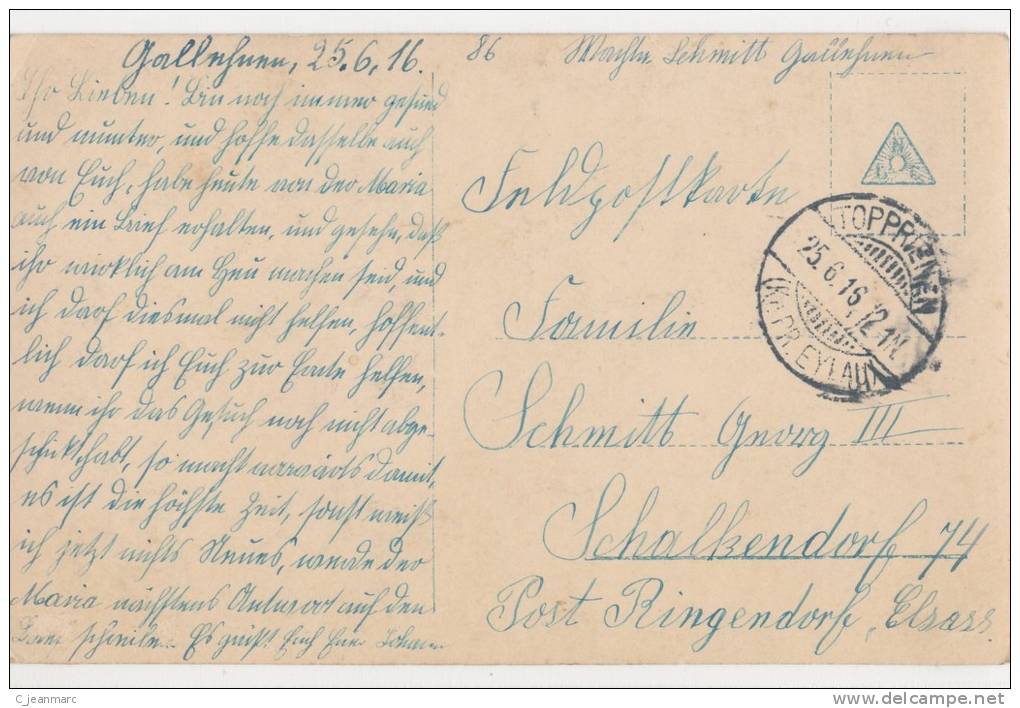 Gallehnen, 25.6.16.
Ihr Lieben! Bin noch immer gesund
und munter, und hoffe dasselbe auch
von Euch, habe heute von der Maria
auch ein Brief erhalten, und gesehn, daß
ihr wirklich am Heu machen seid, und
ich darf diesmal nicht helfen, hoffent-
lich darf ich Euch zur Ernte helfen,
wenn ihr das Gesuch noch nicht abge-
schikt habt, so macht vorwärts damit,
es ist die höchste Zeit, sonst weiß
ich jetzt nichts Neues, werde der
Maria nächstens Antwort auf den
Brief schreiben. Es grüßt Euch Euer
86 Wachtm. Schmitt Gallehnen
Feldpostkarte
Familie
Schmitt Georg III
Schalkendorf 74
Post Ringendorf, Elsass
TOPPRIENEN
25.6.16. 12-1N.
PR. EYLAU
C jeanmarc
www.delcampe.net